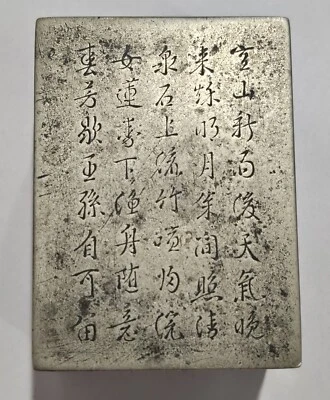 空山新雨後天氣晚
來秋明月松間照清
泉石上流竹喧歸浣
女蓮動下漁舟随意
春芳歇王孫自可留